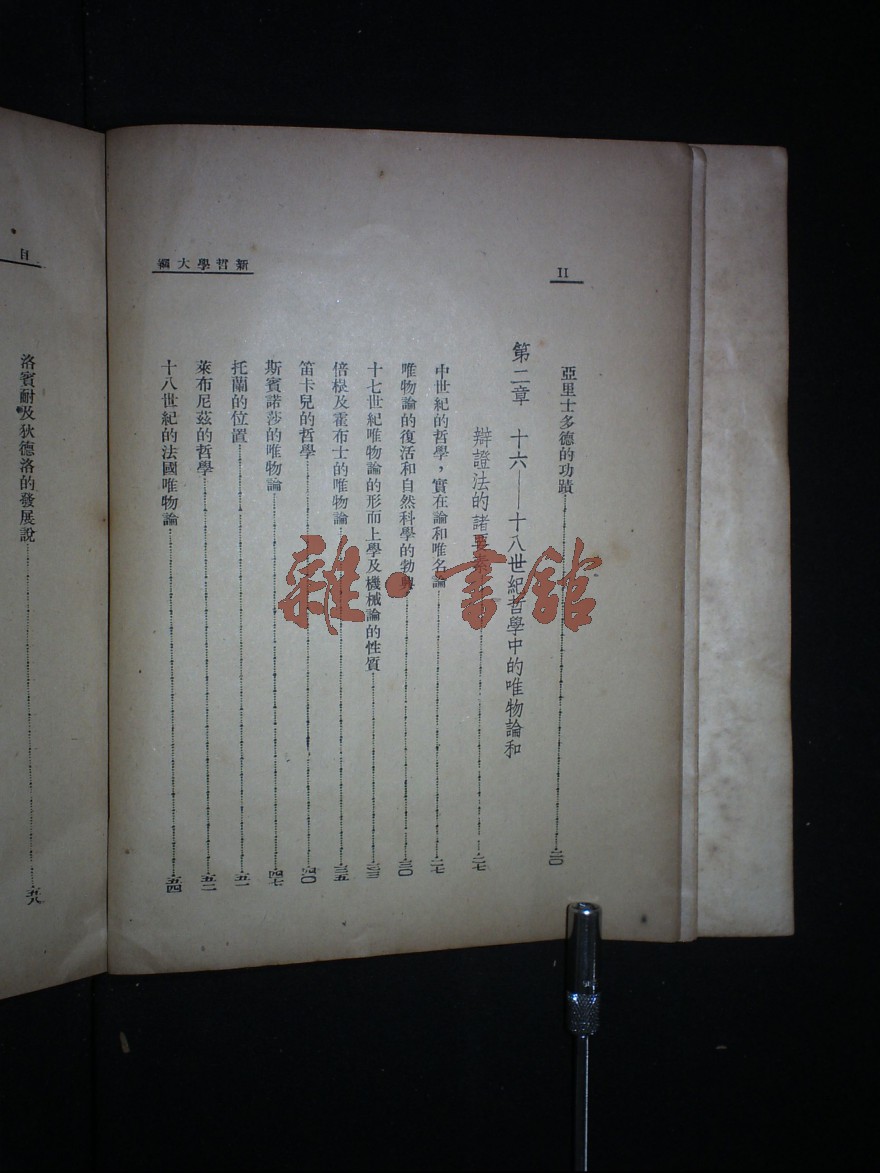 新哲學大綱
II
亞里士多德的功蹟 二〇
第二章 十六——十八世紀哲學中的唯物論和
辯證法的諸要素 二七
中世紀的哲學，實在論和唯名論 二七
唯物論的復活和自然科學的勃興 三〇
十七世紀唯物論的形而上學及機械論的性質 三三
倍根及霍布士的唯物論 三五
笛卡兒的哲學 四〇
斯賓諾莎的唯物論 四七
托蘭的位置 五一
萊布尼茲的哲學 五二
十八世紀的法國唯物論 五四
目
洛賓耐及狄德洛的發展說 五八
雜·書館